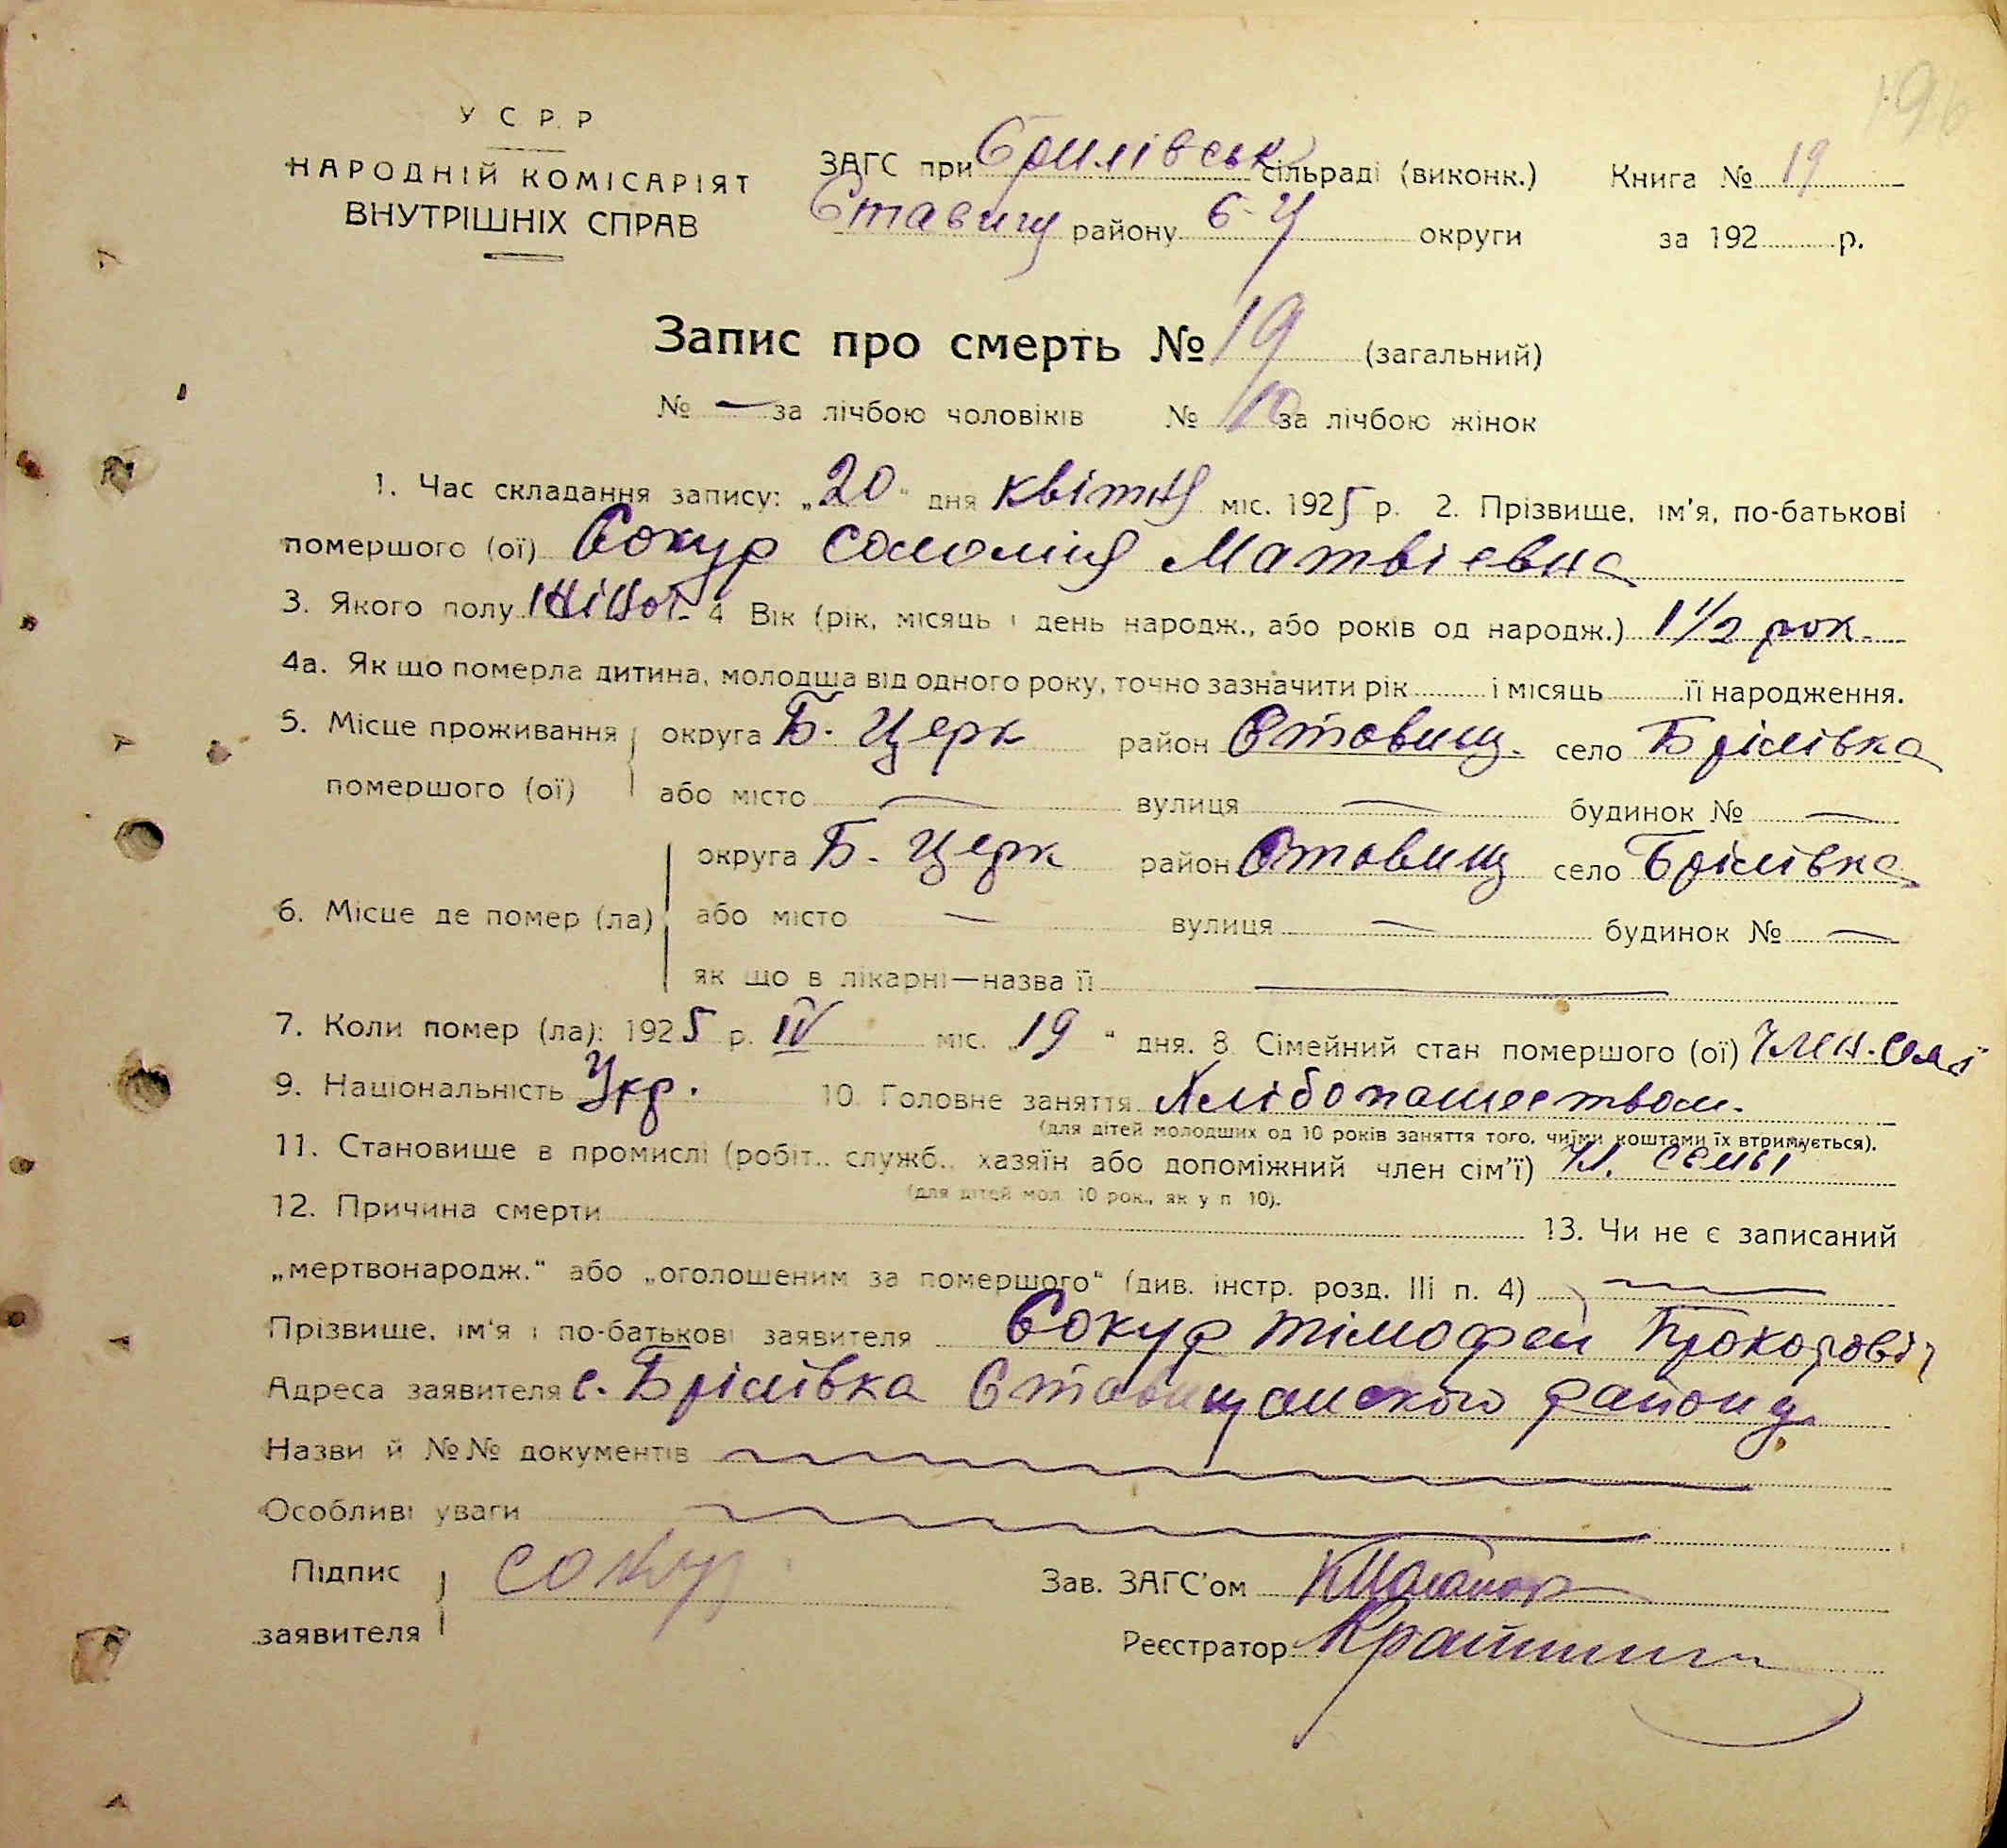 196
У С Р Р
НАРОДНІЙ КОМІСАРІЯТ
ВНУТРІШНІХ СПРАВ
ЗАГС при Брилівськ сільраді (виконк.) Книга № 19
Ставищ району Б-Ц округи за 192 р.
Запис про смерть № 19 (загальний)
№ — за лічбою чоловіків № 10 за лічбою жінок
1. Час складання запису: „20“ дня квітня міс. 1925 р. 2. Прізвище, ім'я, по-батькові
помершого (ої) Сокур Соломія Матвіевна
3. Якого полу жіноі. 4 Вік (рік, місяць і день народж., або років од народж.) 1 1/2 рок.
4а. Як що померла дитина, молодша від одного року, точно зазначити рік і місяць її народження.
5. Місце проживання округа Б. Церк район Ставищ. село Брілівка
помершого (ої) або місто — вулиця — будинок № —
округа Б. Церк район Ставищ село Брілівка
6. Місце де помер (ла) або місто — вулиця — будинок № —
як що в лікарні—назва її —
7. Коли помер (ла): 1925 р. IV міс. „19“ дня. 8. Сімейний стан помершого (ої) член. сем'ї
9. Національність Укр. 10. Головне заняття Хлібопашеством.
(для дітей молодших од 10 років заняття того, чиїми коштами їх втримується).
11. Становище в промислі (робіт., служб., хазяїн або допоміжний член сім'ї) чл. семьі
(для дітей мол. 10 рок., як у п 10).
12. Причина смерти 13. Чи не є записаний
„мертвонародж.“ або „оголошеним за помершого“ (див. інстр. розд. III п. 4)
Прізвище, ім'я і по-батькові заявителя Сокур Тімофей Прокоровіч
Адреса заявителя с. Брілівка Ставищанского району
Назви й №№ документів
Особливі уваги
Підпис заявителя Сокур
Зав. ЗАГС'ом
Реєстратор